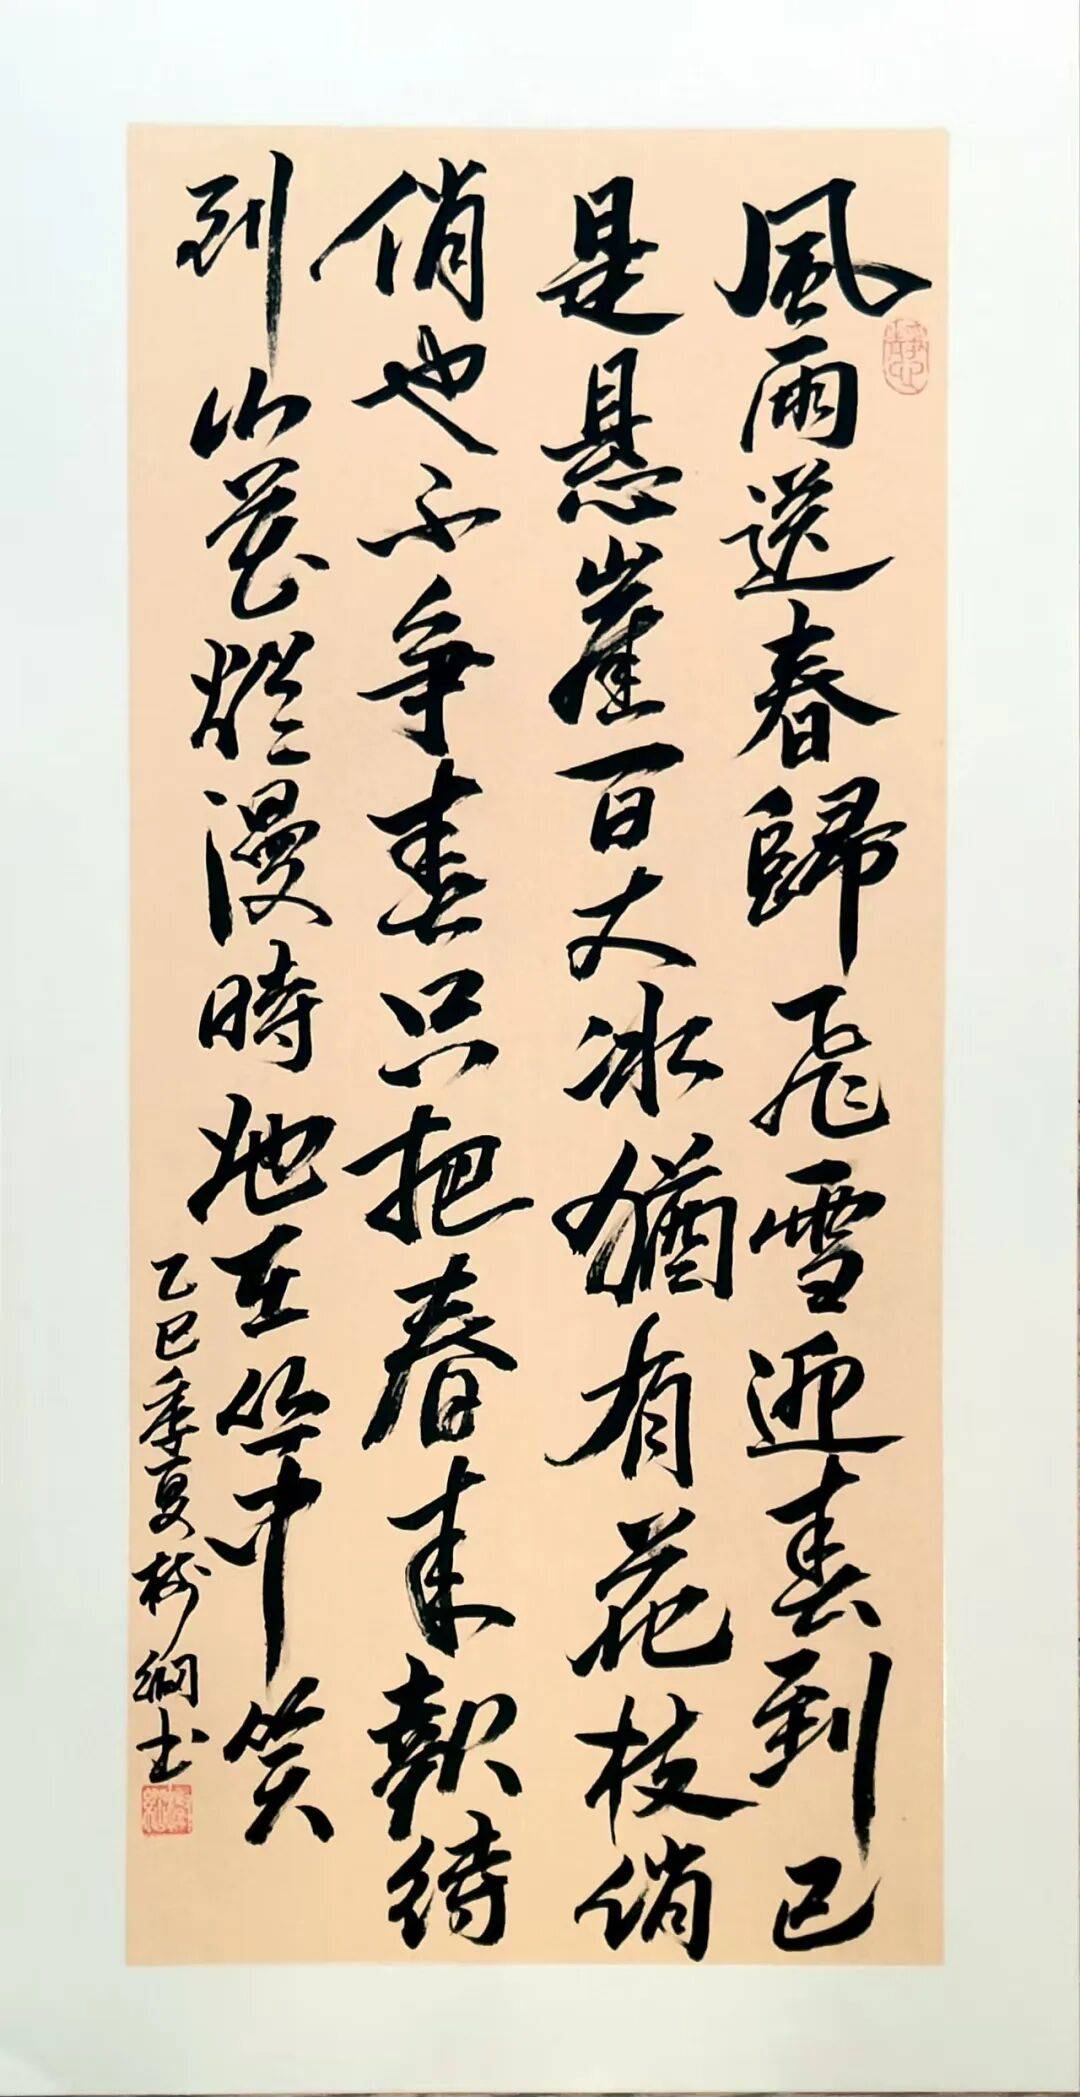 風雨送春歸飛雪迎春到已
是懸崖百丈冰猶有花枝俏
俏也不爭春只把春來報待
到山花爛漫時她在叢中笑
乙巳季夏樹綱書